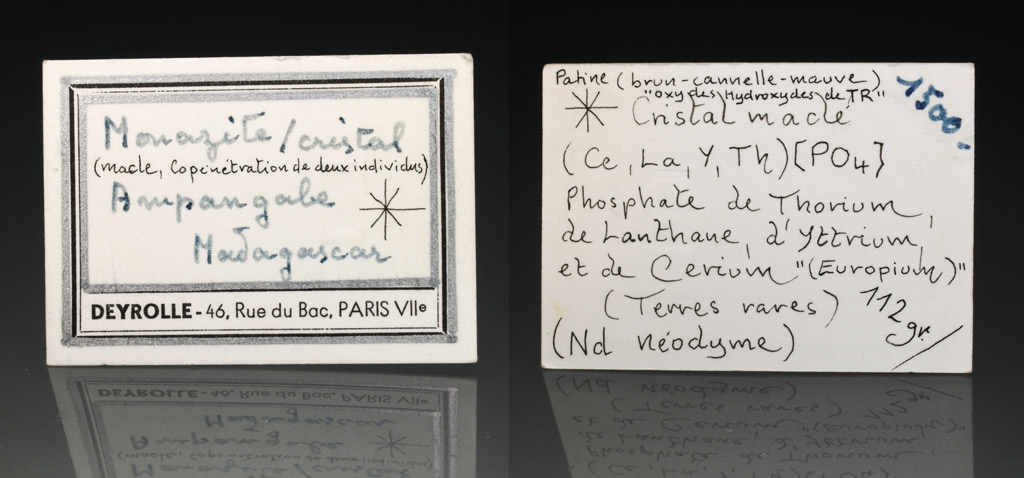 Monazite/cristal
(macle, Copénétration de deux individus)
Ampangabe
Madagascar
DEYROLLE - 46, Rue du Bac, PARIS VIIe
Patine (brun-cannelle-mauve)
"oxydes Hydroxydes de TR"
1500.-
Cristal maclé
(Ce, La, Y, Th) [PO4]
Phosphate de Thorium,
de Lanthane, d'Yttrium,
et de Cerium "(Europium)"
(Terres rares) 112 gr.
(Nd néodyme)